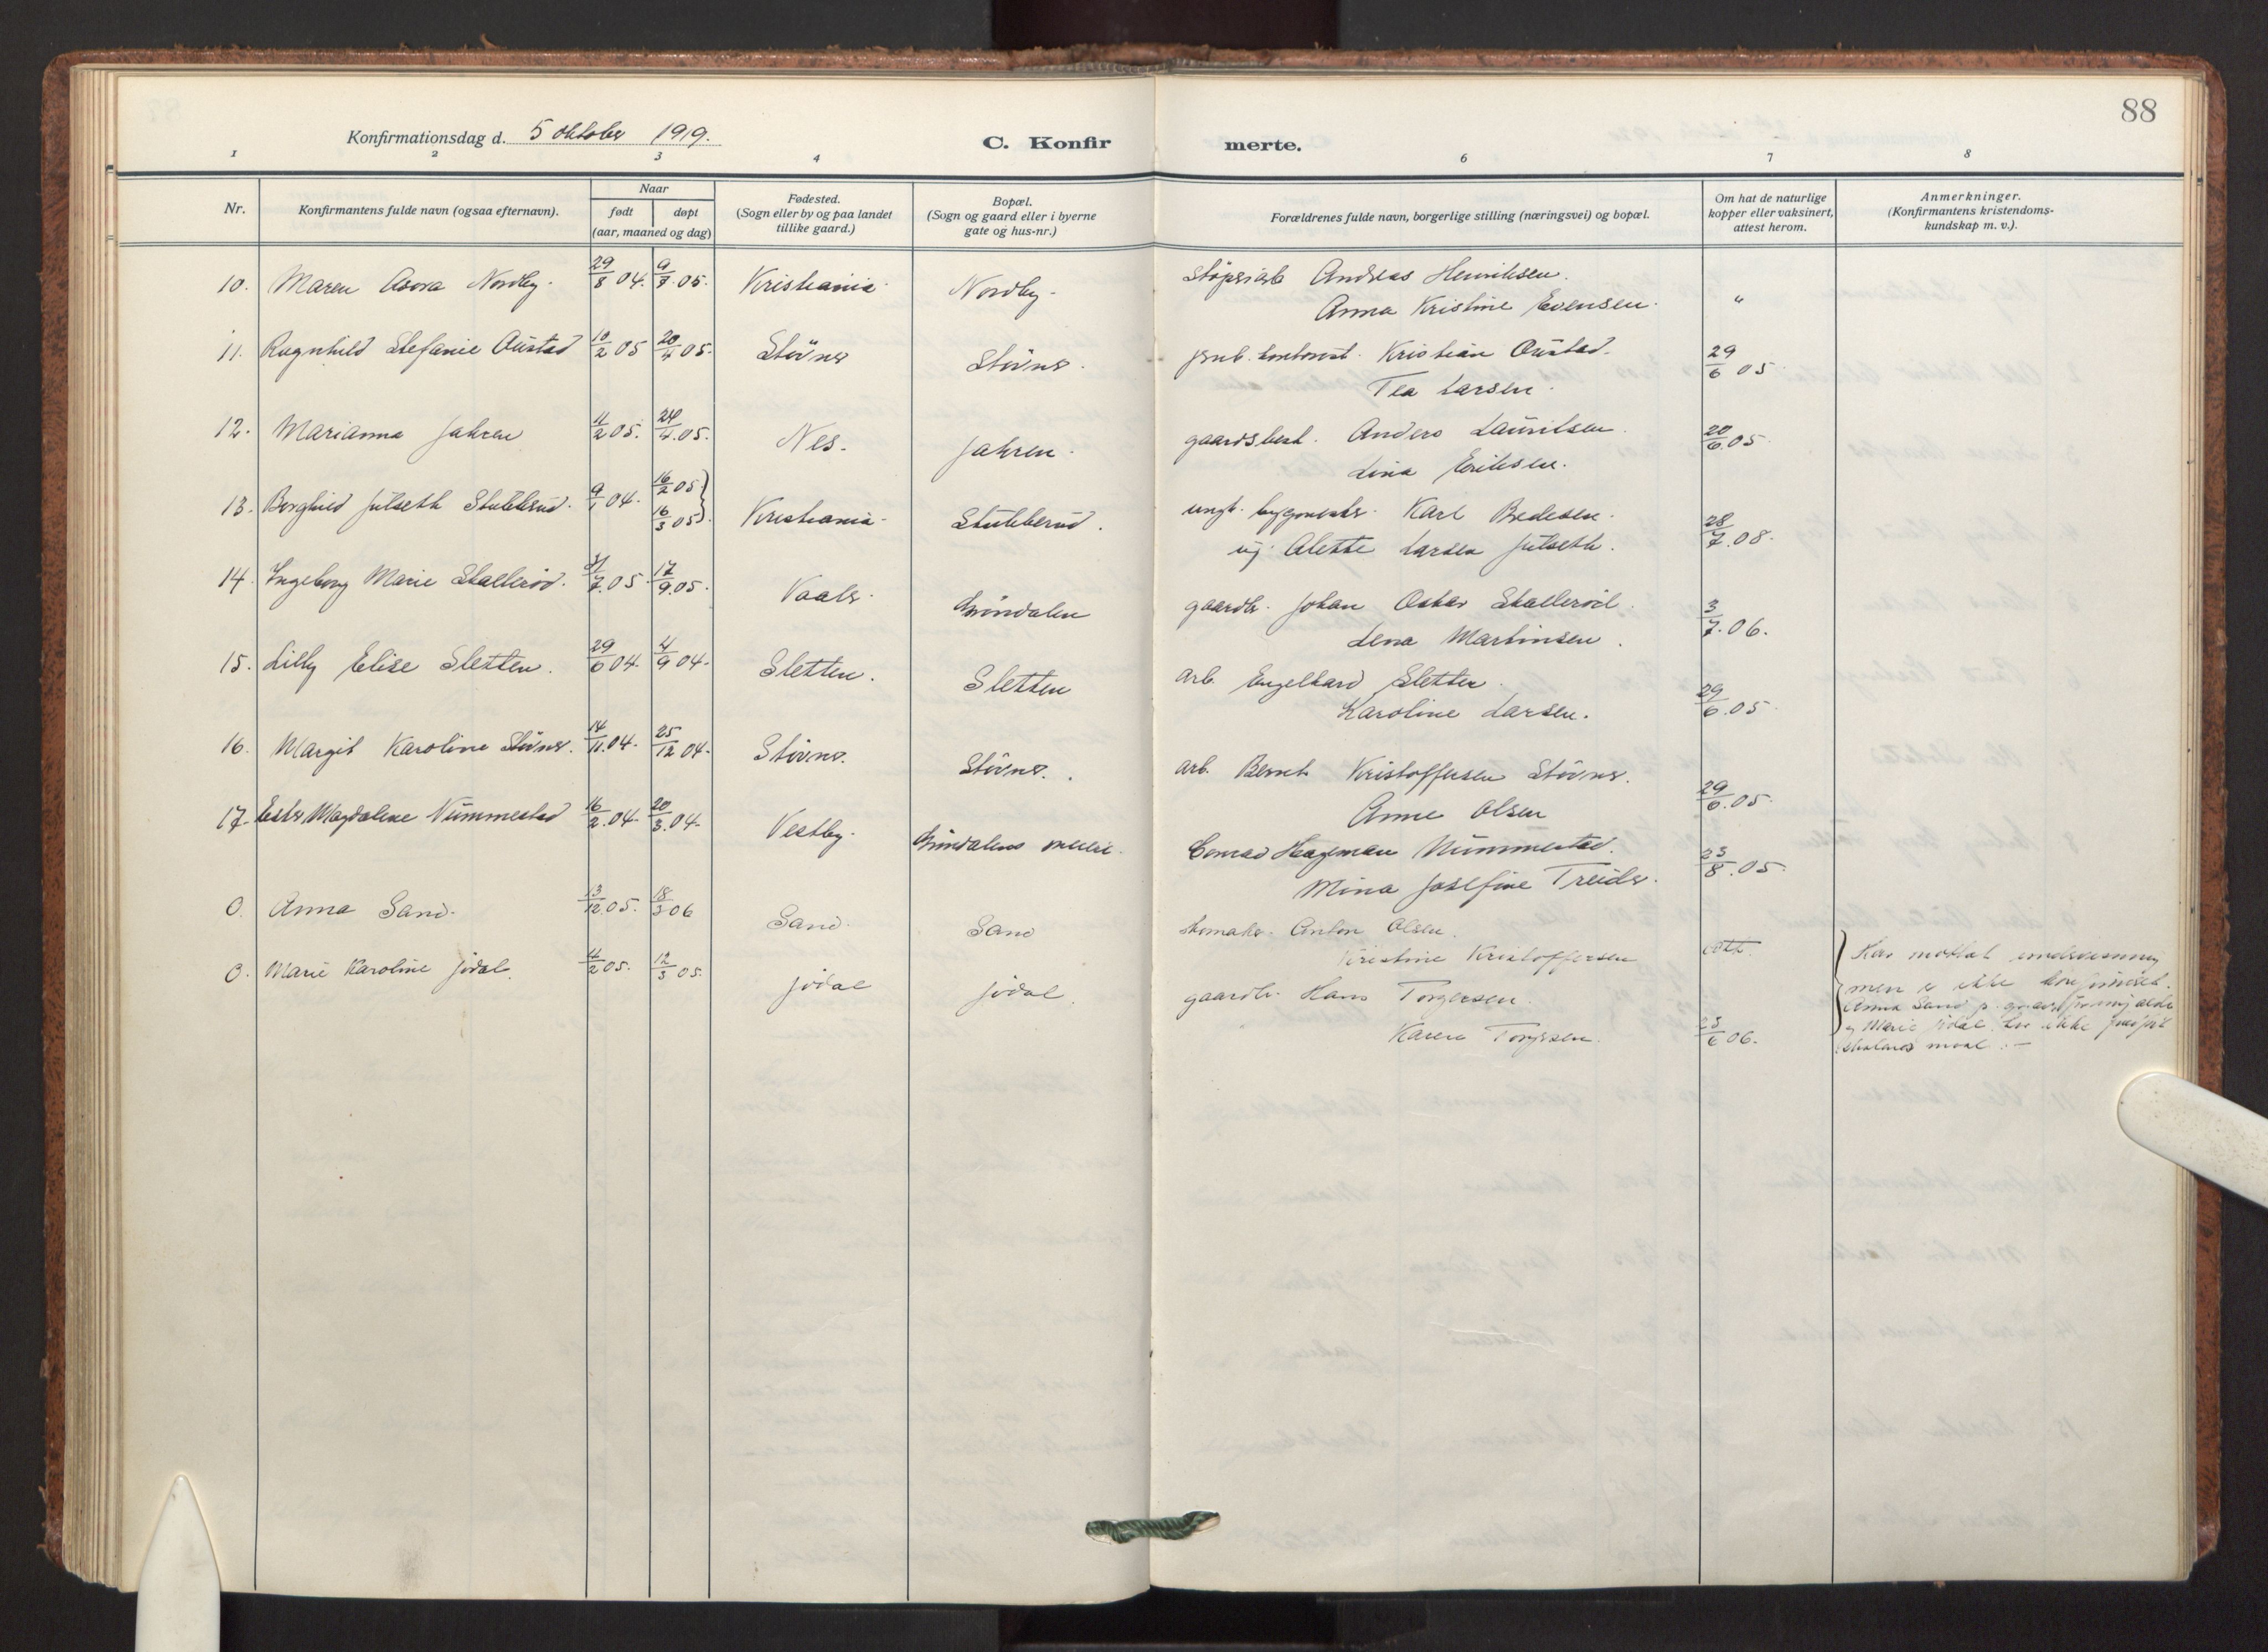 88
Konfirmationsdag d. 5 oktober 1919.
C. Konfirmerte.
1 2 3 4 6 7 8
Nr.
Konfirmantens fulde navn (ogsaa efternavn).
Naar
født døpt
(aar, maaned og dag)
Fødested.
(Sogn eller by og paa landet
tillike gaard.)
Bopæl.
(Sogn og gaard eller i byerne
gate og hus-nr.)
Forældrenes fulde navn, borgerlige stilling (næringsvei) og bopæl.
Om hat de naturlige
kopper eller vaksinert,
attest herom.
Anmerkninger.
(Konfirmantens kristendoms-
kundskap m. v.).
10. Maren Asora Nordby. 29/8 04. 9/7.05. Kristiania. Nordby. Støperiarb Andreas Henriksen.
Anna Kristine Evensen. "
11. Ragnhild Stefanie Oustad 10/2 05 20/4 05. Støvner Støvner. Kristian Oustad.
Tea Larsen. 29/6 05
12. Marianna Jahren 11/2 05. 24/4.05. Nes. Jahren. gaardsbest. Anders Lauritsen.
Lina Eriksen. 20/6.05
13. Borghild Julseth Stubberud. 9/1 04. 16/2 05
16/3 05 Kristiania. Stubberud. ungk. bygmester. Karl Bredesen.
pj. Alette Larsen Julseth. 28/7.08.
14. Ingeborg Marie Skallerød. 31/7.05. 17/9.05. Vaaler. Grøndalen gaardbr. Johan Oskar Skallerød.
Lena Martinsen. 3/7.06.
15. Lilly Elise Sletten. 29/6 04. 4/9 04. Sletten. Sletten arb. Engelhard Sletten.
Karoline Larsen. 29/6.05
16. Margit Karoline Støvner. 14/11.04. 25/12 04. Støvner. Støvner. arb. Bernt Kristoffersen Støvner.
Anne Olsen 29/6.05.
17. Ester Magdalene Nummestad 16/2.04. 20/3.04. Vestby. Grøndalens meieri. Conrad Hageman Nummestad.
Mina Josefine Treider. 23/8.05.
0. Anna Sand. 13/12 05. 18/3 06 Sand. Sand skomaker. Anton Olsen.
Kristine Kristoffersen
0. Marie Karoline Jødal. 11/2 05. 12/3 05. Jødal Jødal. gaardbr. Hans Torgersen.
Karen Torgersen. 23/6 06.
Har mottat undervisning
men er ikke konfirmeret.
Anna Sand p. grund for ung alder
og Marie Jødal har ikke
skolens maal. –